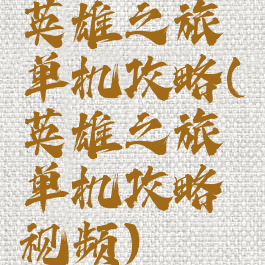 英雄之旅
单机攻略(
英雄之旅
单机攻略
视频)